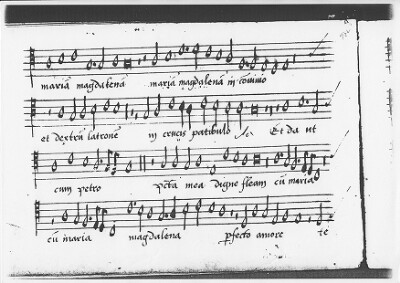 mariā magdalenā mariā magdalenā in convivio
et dextrū latronē in crucis patibulo Et da ut
cum petro pctā mea digne fleam cū maria
cū maria magdalena pfecto amore te